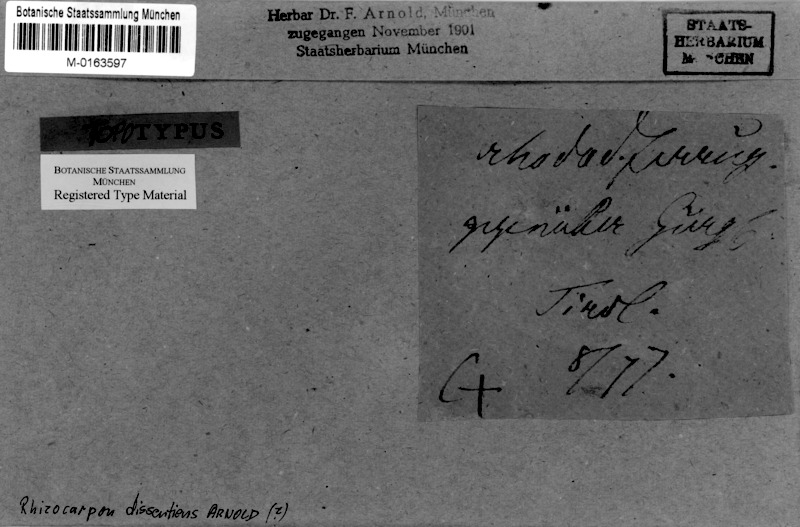 Botanische Staatssammlung München
M-0163597
Herbar Dr. F. Arnold, München
zugegangen November 1901
Staatsherbarium München
STAATS-
HERBARIUM
MÜNCHEN
TOPOTYPUS
BOTANISCHE STAATSSAMMLUNG
MÜNCHEN
Registered Type Material
rhodod. ferrug.
gegenüber Gurgl
Tirol.
8/77.
C+
Rhizocarpon dissentiens ARNOLD (?)